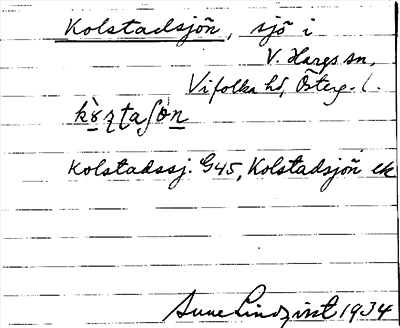 Kolstadsjön, sjö i
V. Hargs sn,
Vifolka hd, Österg. l.
Kolstadssj. G45, Kolstadsjön ek
Sune Lindqvist 1934